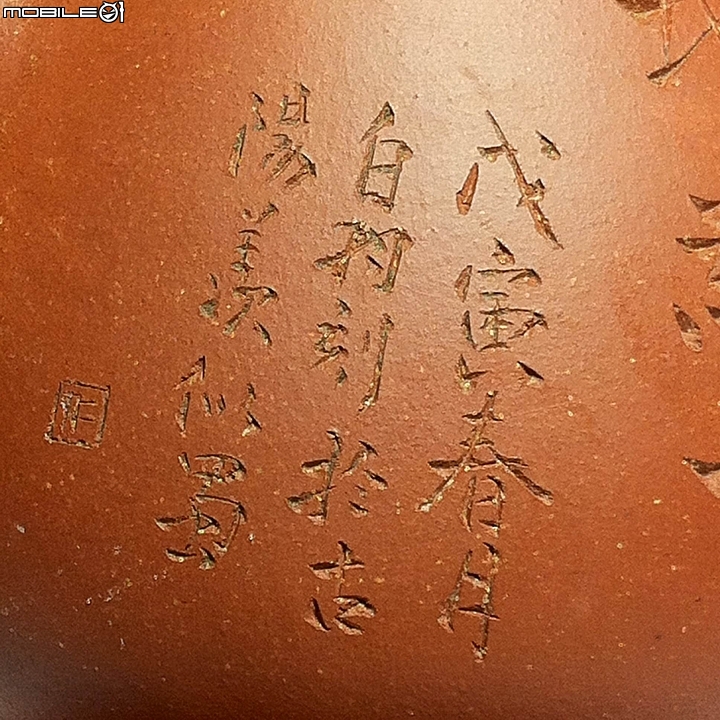 MOBILE01
戊寅春月
白刻於古
陽羨似蜀